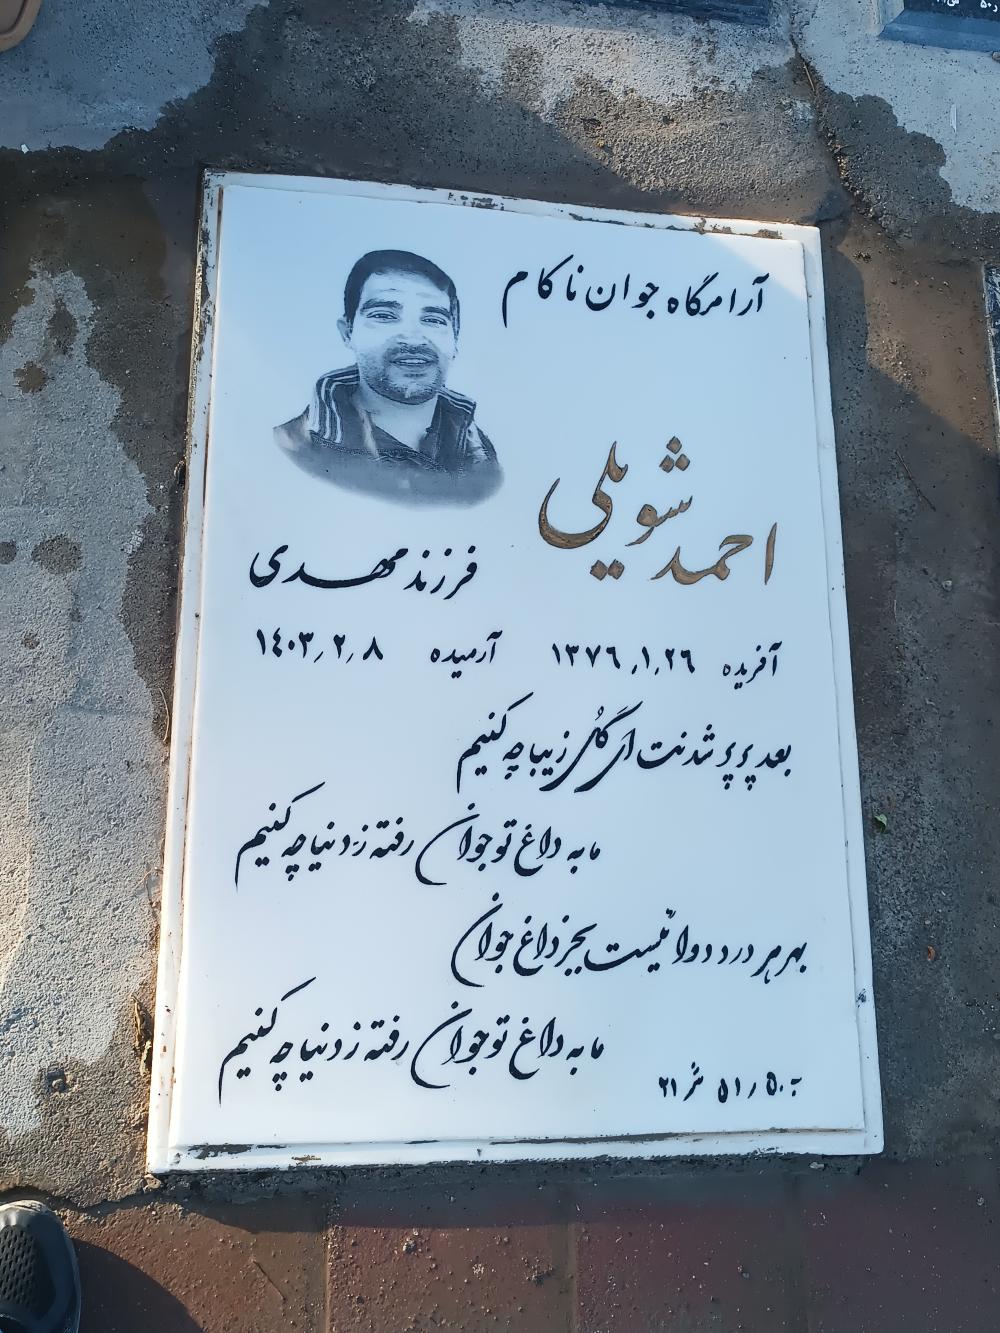 آرامگاه جوان ناکام
احمد شویلی
فرزند مهدی
آفریده ۱۳۷۶٫۱٫۲۶ آرمیده ۱۴۰۳٫۲٫۸
بعد پر پر شدنت ای گُل زیبا چه کنیم
ما به داغ تو جوان رفته ز دنیا چه کنیم
بهر هر درد دوا نیست بجز داغ جوان
ما به داغ تو جوان رفته ز دنیا چه کنیم
۵۰ ر ۵۱ ش ۲۱